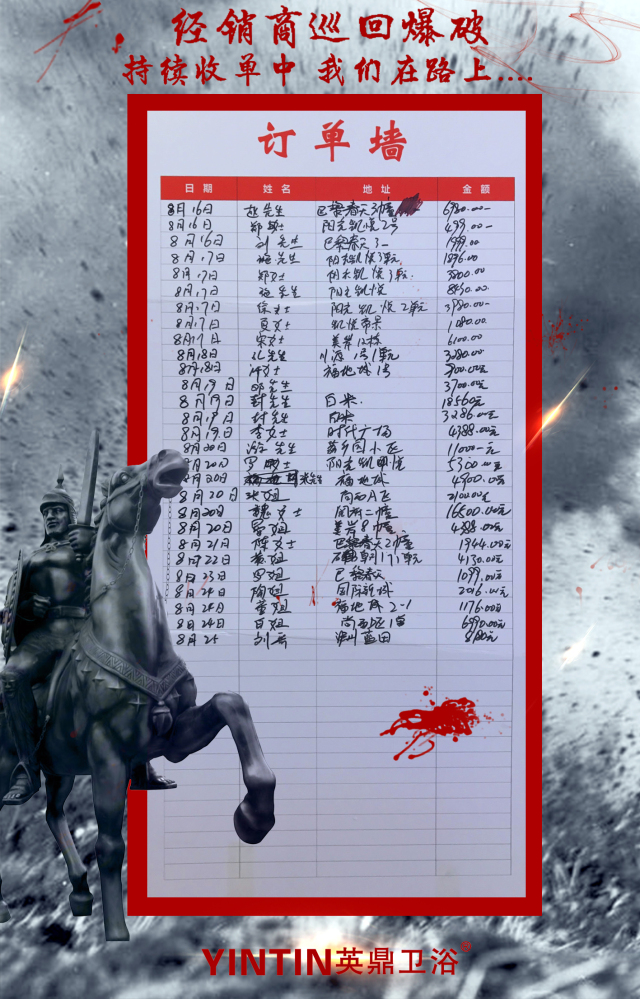 经销商巡回爆破
持续收单中 我们在路上....
订单墙
日期 姓名 地址 金额
8月16日 赵先生 巴黎春天3幢 6980.00-
8月16日 郑女士 阳光凯悦2号 499.00-
8月16日 刘先生 巴黎春天3- 1999.00
8月17日 先生 阳光凯悦3单元 1896.00
8月17日 郑女士 阳光凯悦3单元. 3800.00
8月17日 先生 阳光凯悦 8430.00
8月17日 徐女士 阳光凯悦2单元 3980.00-
8月17日 女士 凯悦帝景 1080.00
8月17日 宋女士 美岸12栋 6100.00
8月18日 孔先生 1号1单元 3280.00
8月18日 许女士 福地城1号 900.00元
8月19日 邱先生 3700.00元
8月19日 封先生 白米. 18560元
8月19日 封先生 白米 3286.00元
8月19日 李女士 时代广场 4388.00元
8月20日 先生 小区 11000-元
8月20日 罗女士 阳光凯悦 5300.00元
8月20日 米先生 福地城 4900.00元
8月20日 姐 尚西A区 2100.00元
8月20日 魏女士 二幢 16800.00元
8月20日 罗姐 美岸8幢 4388.00元
8月21日 女士 巴黎春天2幢 1944.00元
8月22日 姐 1单元 4130.00元
8月23日 罗姐 巴黎春天 1099.00元
8月24日 陶姐 国际新城 2016.00元
8月24日 董姐 福地城2-1 1176.00元
8月24日 姐 尚西区1 6990.00元
8月25 刘 蓝田 元
YINTIN英鼎卫浴